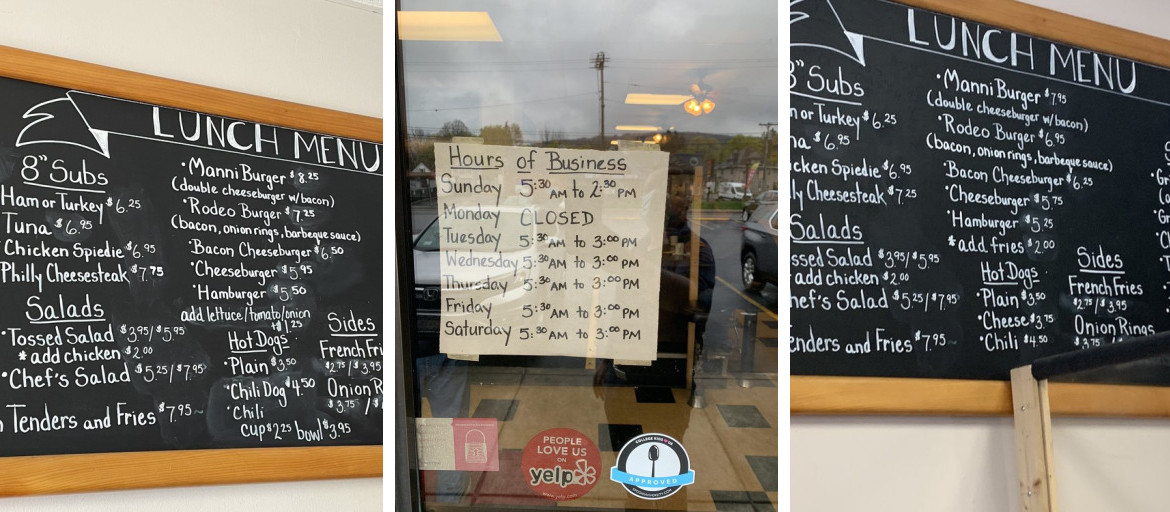 LUNCH MENU
8" Subs
Ham or Turkey $6.25
Tuna $6.95
Chicken Spiedie $6.95
Philly Cheesesteak $7.75
Salads
•Tossed Salad $3.95/$5.95
* add chicken $2.00
•Chef's Salad $5.25/$7.95
Tenders and Fries $7.95~
•Manni Burger $8.25
(double cheeseburger w/bacon)
•Rodeo Burger $7.25
(bacon, onion rings, barbeque sauce)
•Bacon Cheeseburger $6.50
•Cheeseburger $5.95
•Hamburger $5.50
add lettuce/tomato/onion
+$1.25
Hot Dogs
•Plain $3.50
•Chili Dog $4.50
•Chili
cup $2.25 bowl $3.95
Sides
French Fri
$2.75/$3.95
Onion R
$3.75
Hours of Business
Sunday 5:30 AM to 2:30 PM
Monday CLOSED
Tuesday 5:30 AM to 3:00 PM
Wednesday 5:30 AM to 3:00 PM
Thursday 5:30 AM to 3:00 PM
Friday 5:30 AM to 3:00 PM
Saturday 5:30 AM to 3:00 PM
PEOPLE
LOVE US
ON
yelp
www.yelp.com
COLLEGE KIDS
APPROVED
LUNCH MENU
8" Subs
m or Turkey $6.25
na $6.95
cken Spiedie $6.95
lly Cheesesteak $7.25
Salads
ssed Salad $3.95/$5.95
add chicken $2.00
hef's Salad $5.25/$7.95
enders and Fries $7.95~
•Manni Burger $7.95
(double cheeseburger w/bacon)
•Rodeo Burger $6.95
(bacon, onion rings, barbeque sauce)
•Bacon Cheeseburger $6.25
•Cheeseburger $5.75
•Hamburger $5.25
*add fries $2.00
Hot Dogs
•Plain $3.50
•Cheese $3.75
•Chili $4.50
Sides
French Fries
$2.75/$3.95
Onion Rings
$3.75